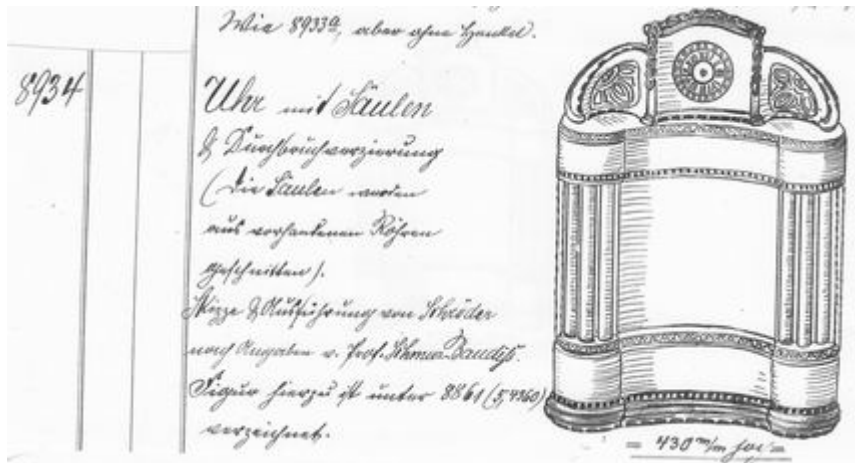 Wie 8933a, aber ohne Henkel.
8934
Uhr mit Säulen
& Durchbruchverzierung
(Die Säulen wurden
aus vorhandenen Röhren
geschnitten).
Skizze & Ausführung von Schröder
nach Angaben v. Prof. Schmuz-Baudiß.
Figur hierzu ist unter 8861 (5,4360)
verzeichnet.
= 430 m/m hoch =